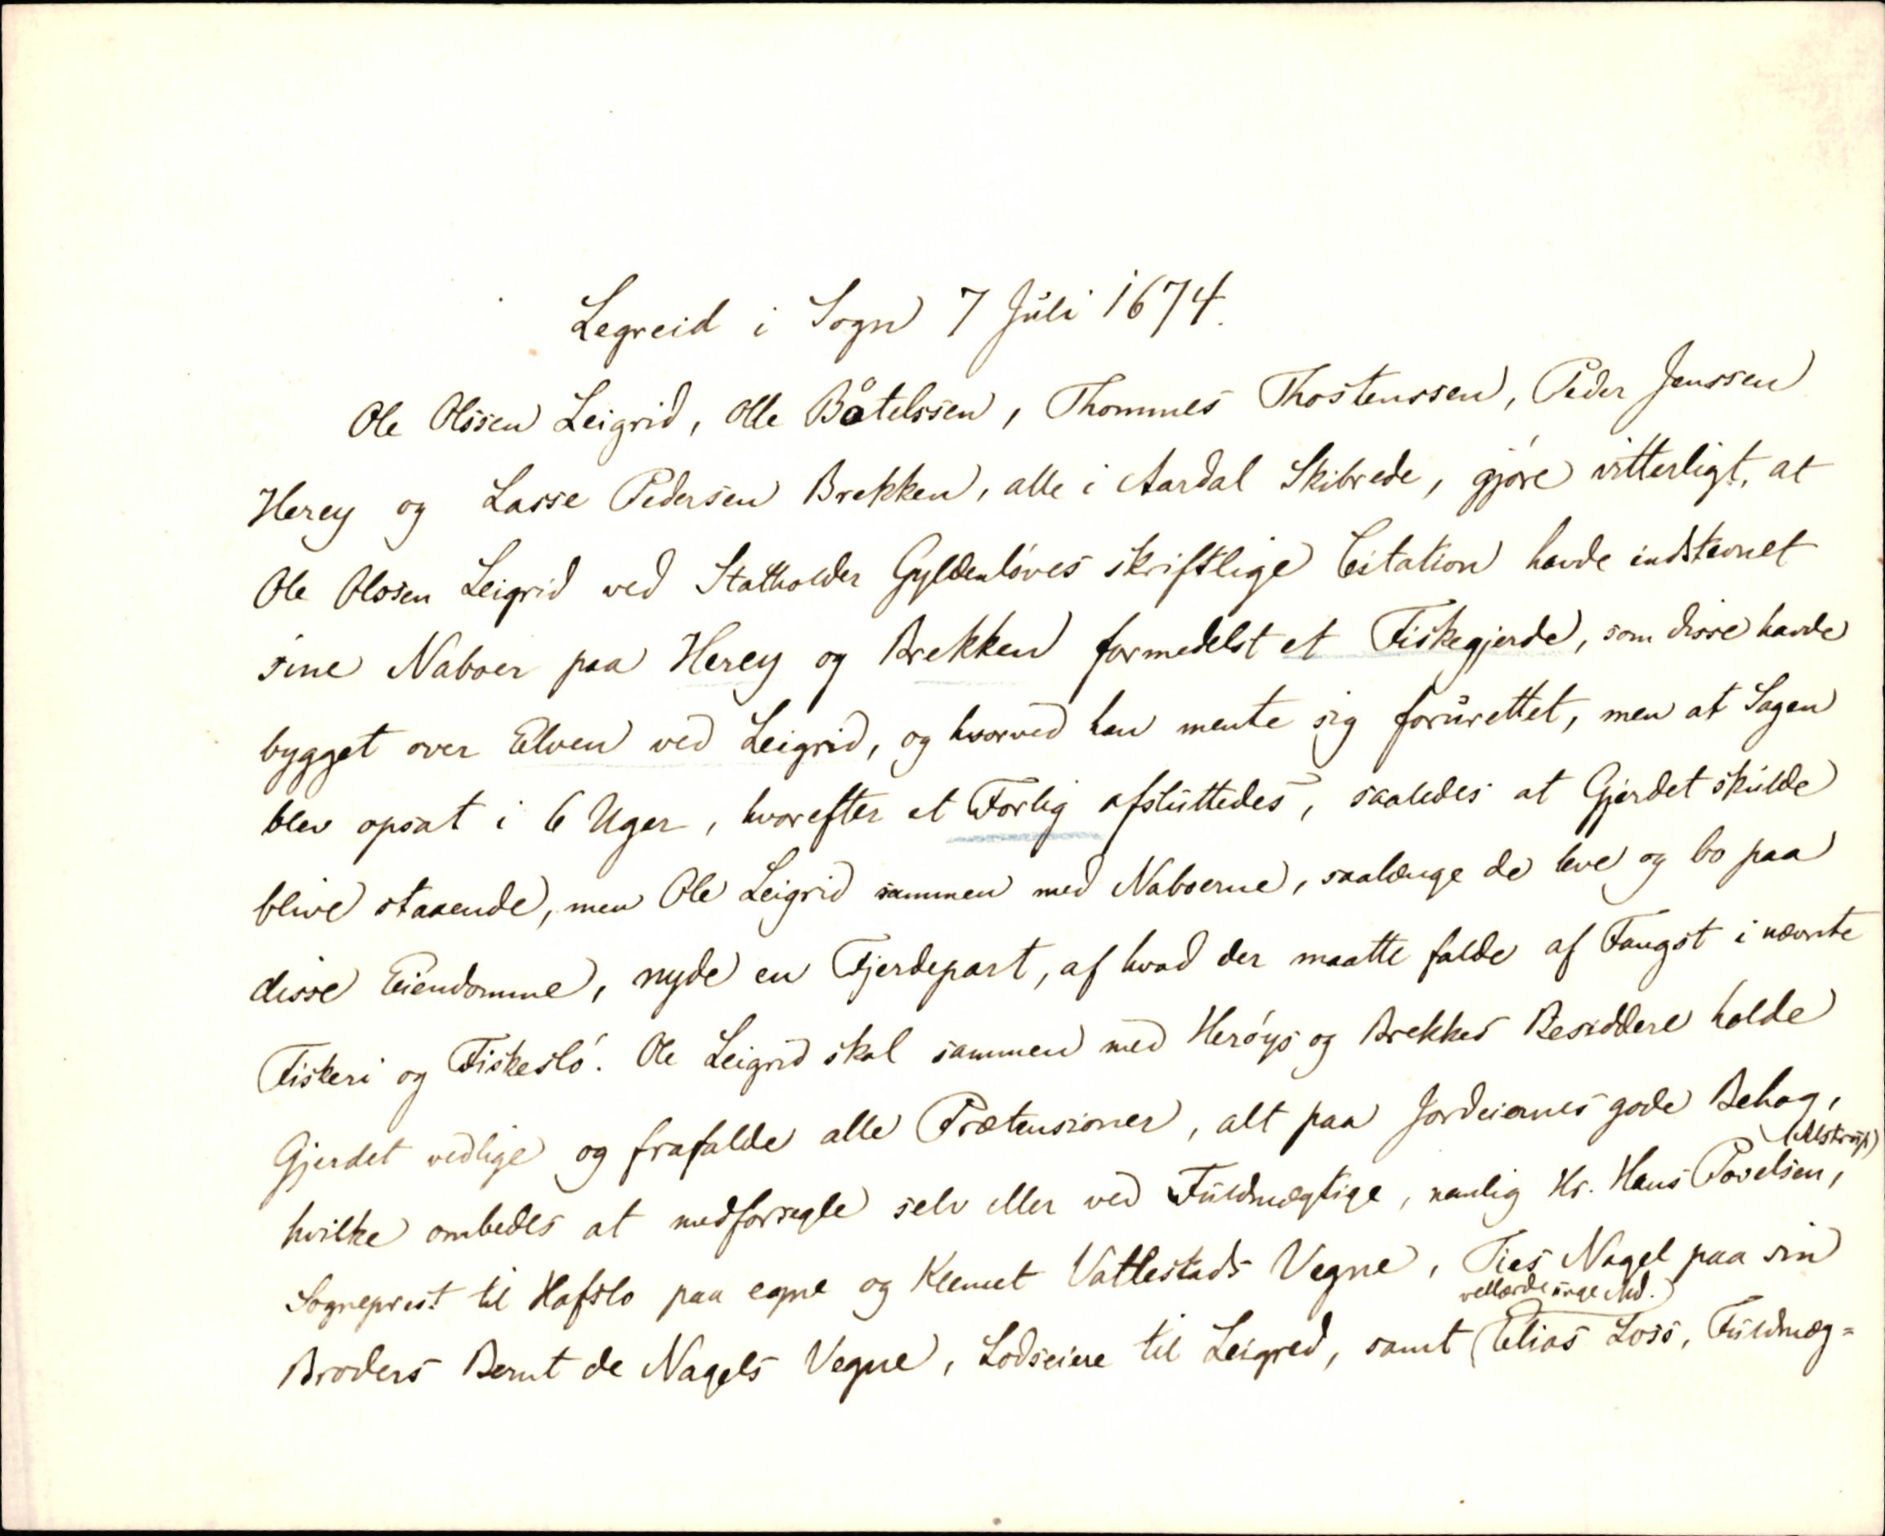 Legreid i Sogn 7 Juli 1674.
Ole Olssen Leigrid, Olle Båtelssen, Thommes Thostenssen, Peder Jenssen
Herey og Lasse Pedersen Brekken, alle i Aardal Skibrede, gjóre vitterligt, at
Ole Olssen Leigrid ved Statholder Gyldenlóves skriftlige Citation havde indstevnet
sine Naboer paa Herey og Brekken formedelst et Fiskegjerde, som disse havde
bygget over Elven ved Leigrid, og hvorved han mente sig forurettet, men at Sagen
blev opsat i 6 Uger, hvorefter et Forlig afsluttedes, saaledes at Gjerdet skulde
blive staaende, men Ole Leigrid sammen med Naboerne, saalænge de leve og bo paa
disse Eiendomme, nyde en Fjerdepart, af hvad der maatte falde af Fangst i nævnte
Fiskeri og Fiskesló. Ole Leigrid skal sammen med Heróys og Brekkes Besiddere holde
Gjerdet vedlige og frafalde alle Prætensioner, alt paa Jordeiernes gode Behag,
hvilke ombedes at medforsegle selv eller ved Fuldmægtige, nemlig Hr. Hans Povelsen (Alstrup),
Sogneprest til Hafslo paa egne og Klemet Vattestads Vegne, Ties Nagel paa sin
Broders Bernt de Nagels Vegne, Lodseiere til Leigred, samt (vellærde unge Md.) Elias Loss, Fuldmæg=